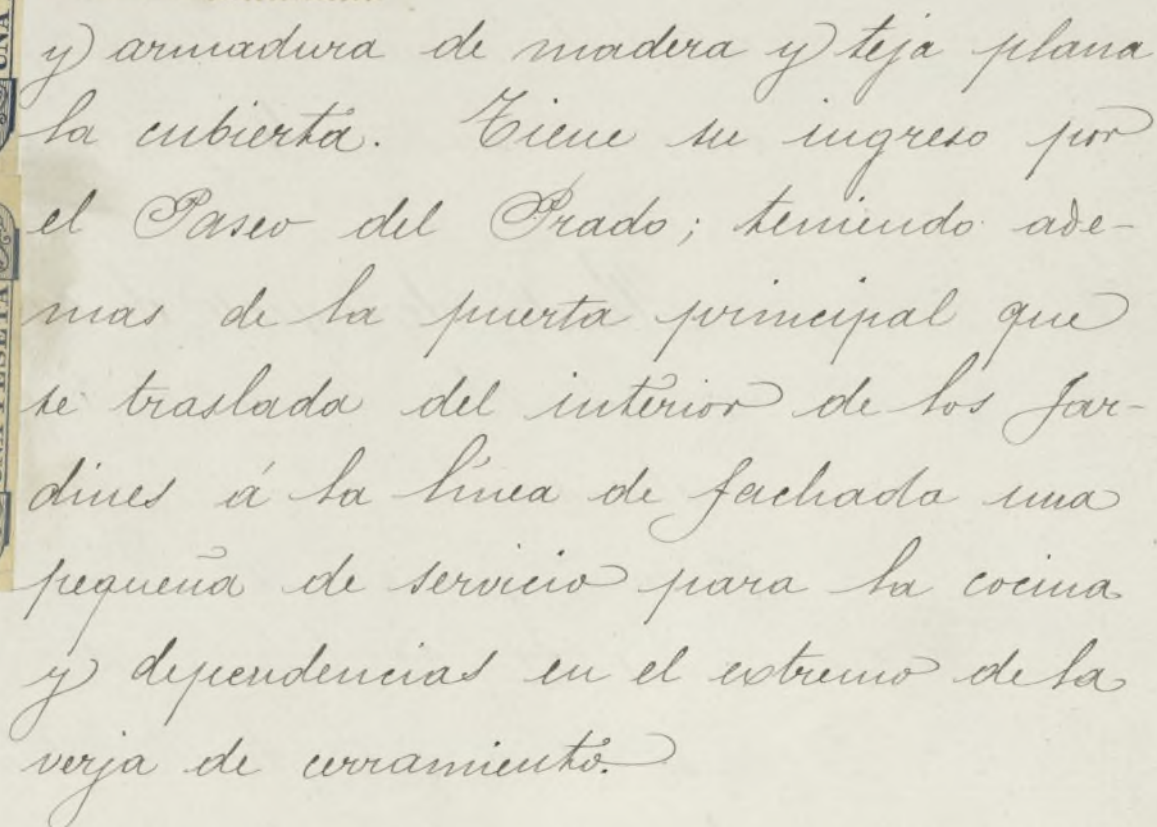 UNA
UNA PESETA
y armadura de madera y teja plana
la cubierta. Tiene su ingreso por
el Paseo del Prado; teniendo ade-
mas de la puerta principal que
se traslada del interior de los Jar-
dines á la línea de fachada una
pequeña de servicio para la cocina
y dependencias en el extremo de la
verja de cerramiento.